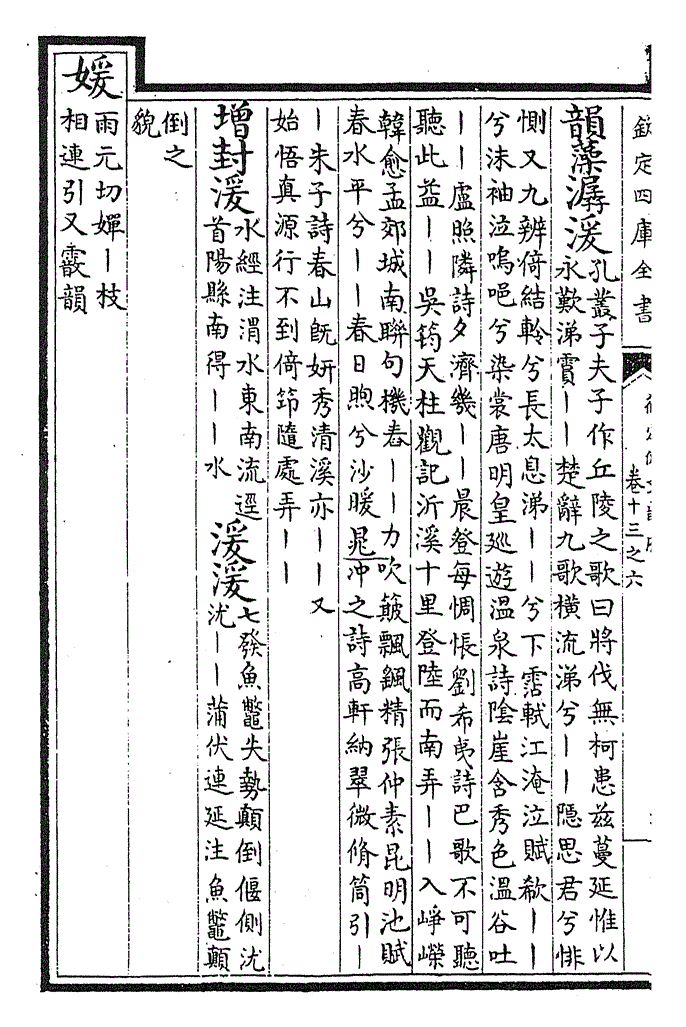 欽定四庫全書
卷十三之六
韻藻潺湲
孔叢子夫子作丘陵之歌曰將伐無柯患茲蔓延惟以
永歎涕霣||楚辭九歌橫流涕兮||隱思君兮悱
惻又九辨倚結軨兮長太息涕||兮下霑軾江淹泣賦欷||
兮沫袖泣嗚唈兮染裳唐明皇廵遊溫泉詩陰崖含秀色溫谷吐
||盧照隣詩夕濟幾||晨登每惆悵劉希夷詩巴歌不可聽
聽此益||吳筠天柱觀記沂溪十里登陸而南弄||入崢嶸
韓愈孟郊城南聯句機舂||力吹簸飄颻精張仲素昆明池賦
春水平兮||春日煦兮沙暖晁沖之詩高軒納翠微脩筒引|
|朱子詩春山旣妍秀清溪亦||又
始悟真源行不到倚筇隨處弄||
增封湲
水經注渭水東南流逕
首陽縣南得||水
湲湲
七發魚鼈失勢顛倒偃側沋
沋||蒲伏連延注魚鼈顛
倒之
貌
媛
雨元切嬋|枝
相連引又霰韻